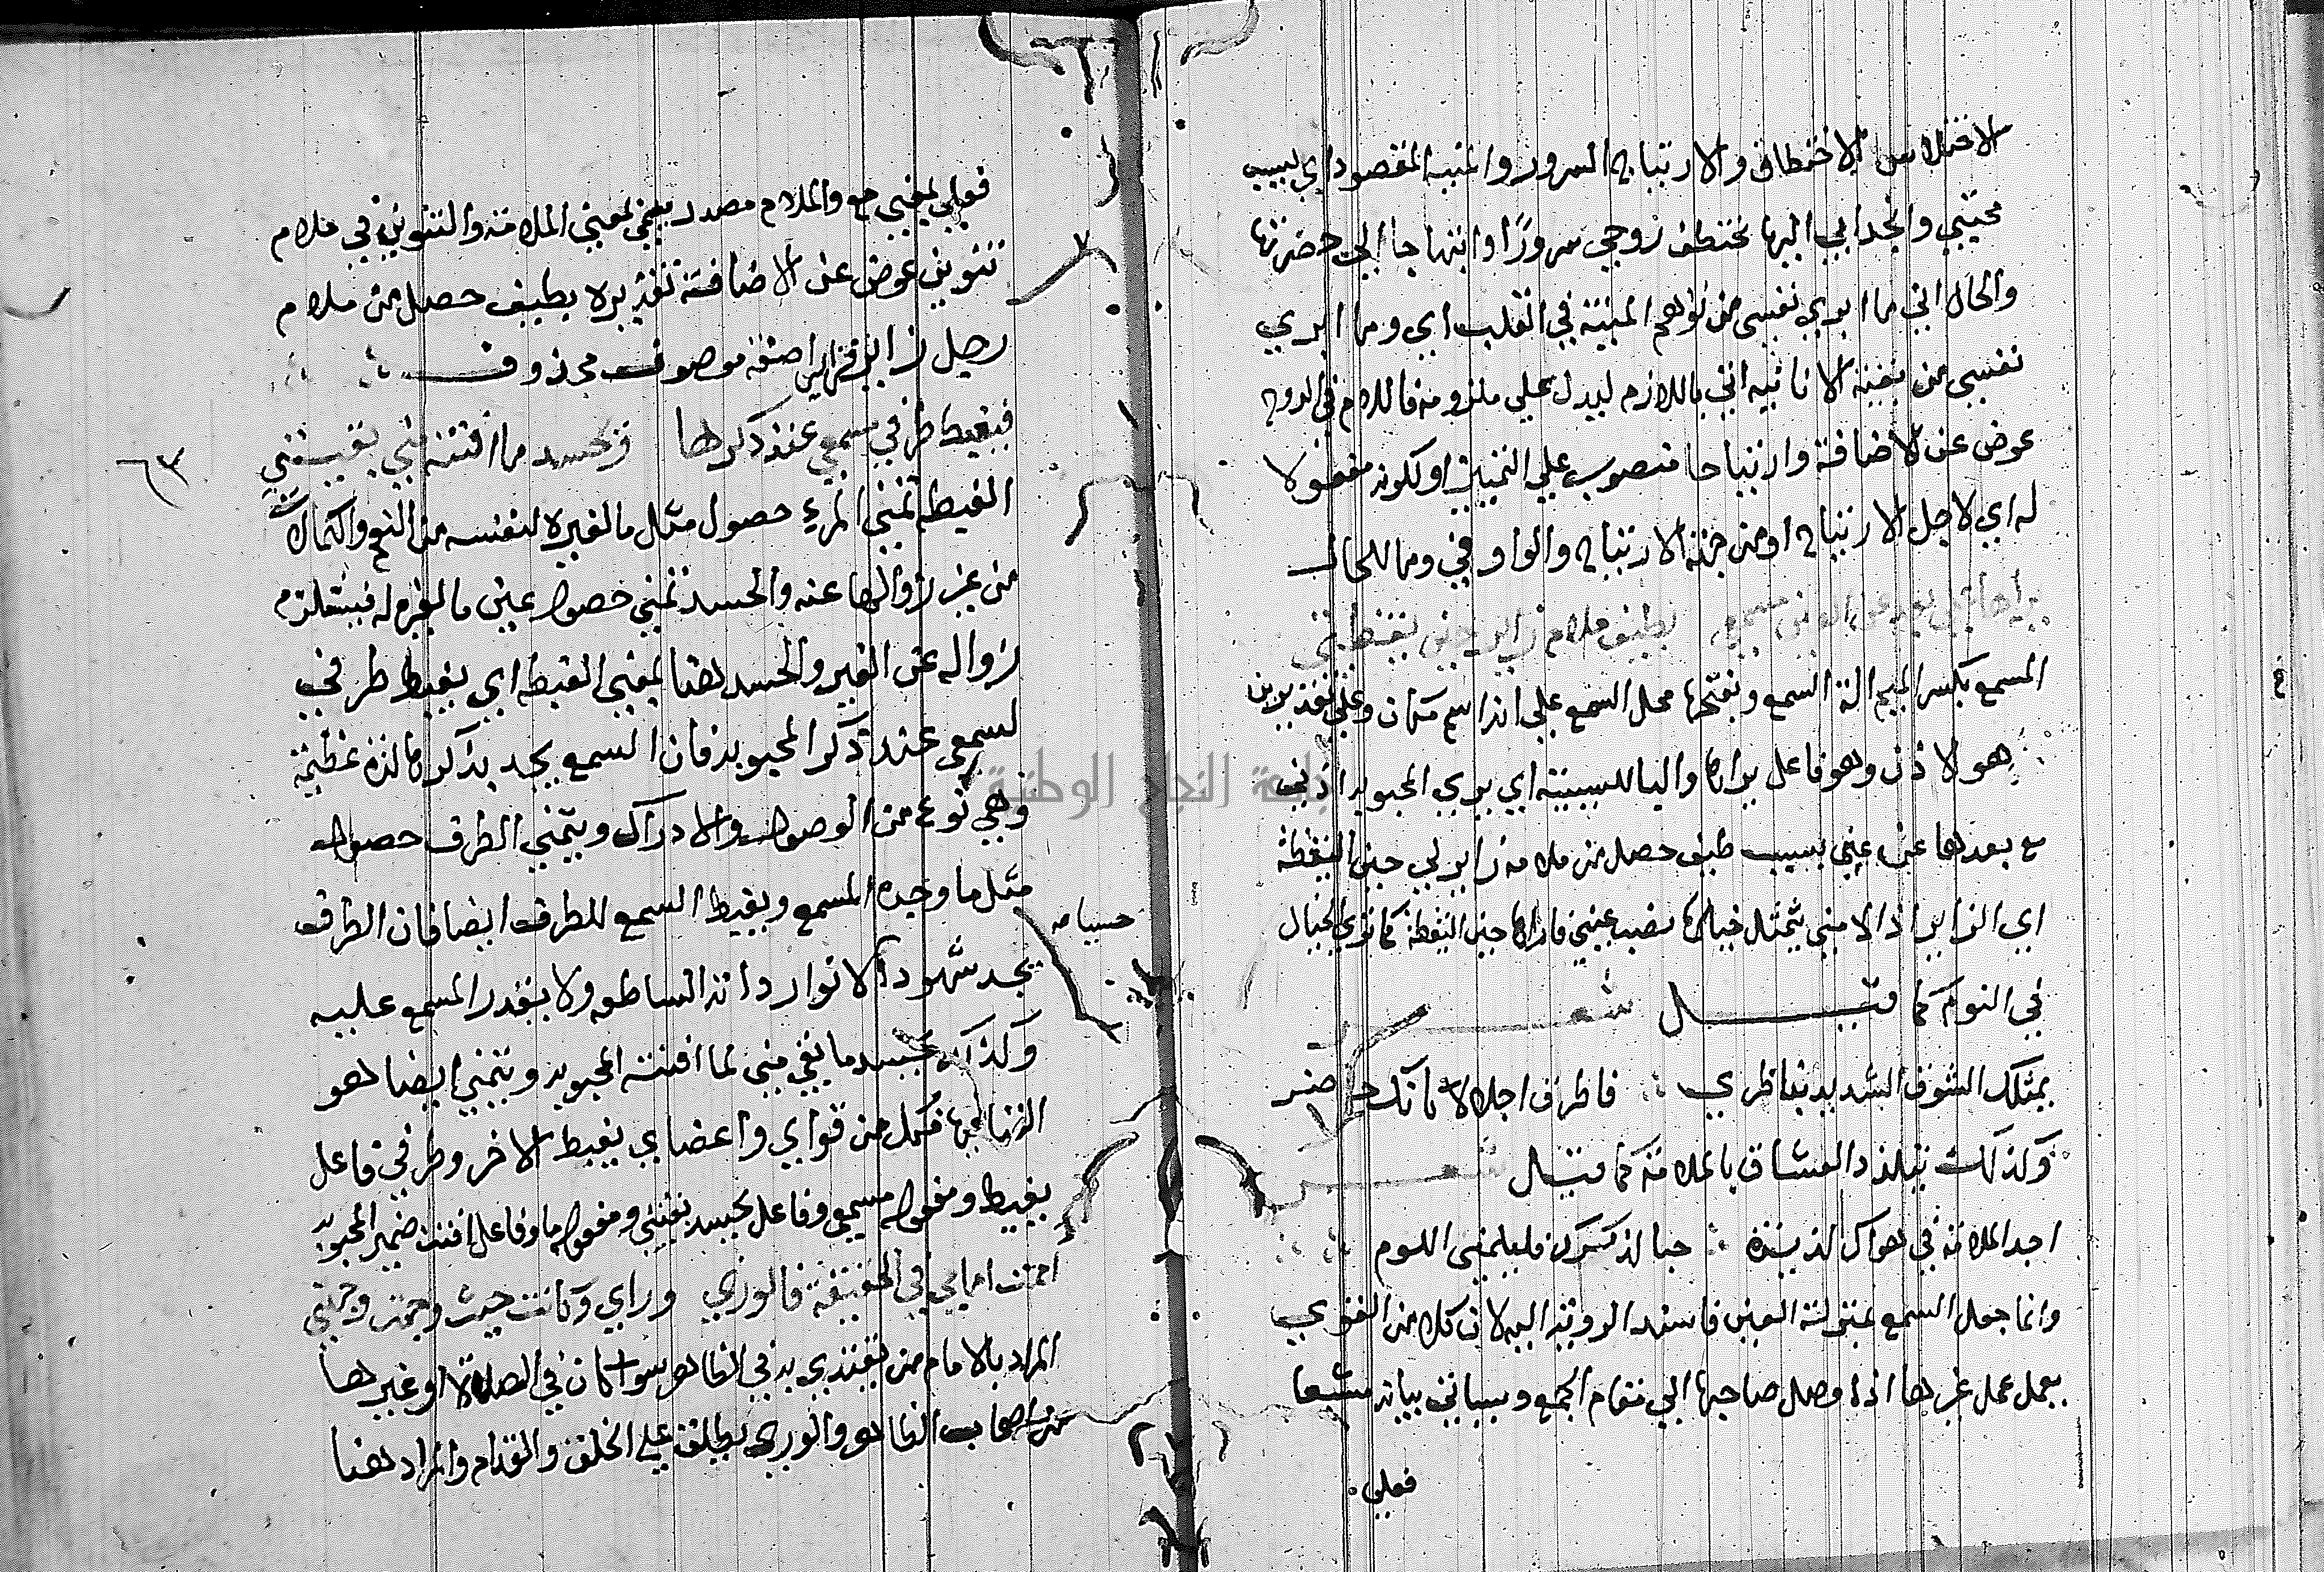 الاختلاس الاختطاف والارتياح السرور والمنية المقصود اي بسبب
محبتي وانجذابي اليها تختطف روحي سرورا وابتهاجا الي حضرتها
والحال اني ما ابري نفسي من توهم المنية في القلب اي وما ابري
نفسي من بقية الاثانية اتي باللازم ليدل علي ملزومه فاللام في الروح
عوض عن الاضافة وارتياحا منصوب علي التمييز او لكونه مفعولا
له اي لاجل الارتياح او من جهة الارتياح والواو في وما للحال
يراها علي بعد عن العين مسمعي بطيف ملام زاير حين يقظتي
المسمع بكسر الميم الة السمع وبفتحها محل السمع علي انه اسم مكان وعلي التقديرين
هو الاذن وهو فاعل يراها واليا للسببية اي يري المحبوبة اذني
مع بعدها عن عيني بسبب طيف حصل من ملامة زاير لي حين اليقظة
اي الزاير اذا لامني يتمثل خيالها نصب عيني فاراها حين اليقظة كما تري الخيال
في النوم كما قيل شعر
يمثلك الشوق الشديد بناظري فاطرق اجلالا كانك حاضر
وكذلك يتلذذ العشاق بالملامة كما قيل شعر
اجد الملامة في هواك لذيذة حبا لذكرك فليلمني اللوم
وانما جعل السمع بمنزلة العين فاسند الروية اليه لان كلا من القوي
يعمل عمل غيرها اذا وصل صاحبها الي مقام الجمع وسياتي بيانه مشبعا
فعلي
فعلي بمعني مع والملام مصدر ميمي بمعني الملامة والتنوين في ملام
تنوين عوض عن الاضافة تقديره بطيف حصل من ملام
رجل زاير فزاير صفة موصوف محذوف
فيغبط طرفي مسمعي عند ذكرها وتحسد ما افنته مني بقيتي
٦٣
الغبطة تمني المرء حصول مثل ما لغيره لنفسه من النعم والكمالات
من غير زوالها عنه والحسد تمني حصول عين ما لغيره له فيستلزم
زواله عن الغير والحسد هنا بمعني الغبطة اي يغبط طرفي
لسمعي عند ذكر المحبوبة فان السمع يجد بذكرها لذة عظيمة
وهي نوع من الوصول والادراك ويتمني الطرف حصول
مثل ما وجده المسمع ويغبط السمع للطرف ايضا فان الطرف
يجد شهود الانوار ذاته الساطعة ولا يقدر المسمع عليه
وكذلك يحسد ما بقي مني لما افنته المحبوبة ويتمني ايضا هو
الفنا فيها فكل من قواي واعضاي يغبط الاخر وطرفي فاعل
يغبط ومفعوله مسمعي وفاعل يحسد بقيتي ومفعوله ما وفاعل افنت ضمير المحبوبة
اممت امامي في الحقيقة فالوري وراي وكانت حيث وجهت وجهتي
المراد بالامام من يقتدي به في الظاهر سوا كان في الصلاة او غيرها
من اصحاب الظاهر والوري يطلق علي الخلف والقدام والمراد هنا
جامعة النجاح الوطنية